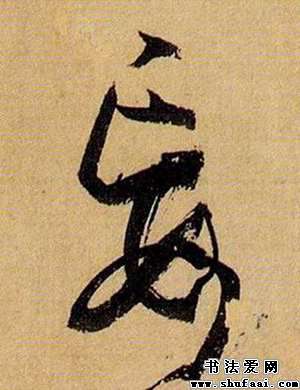 妄
书法爱网
www.shufaai.com